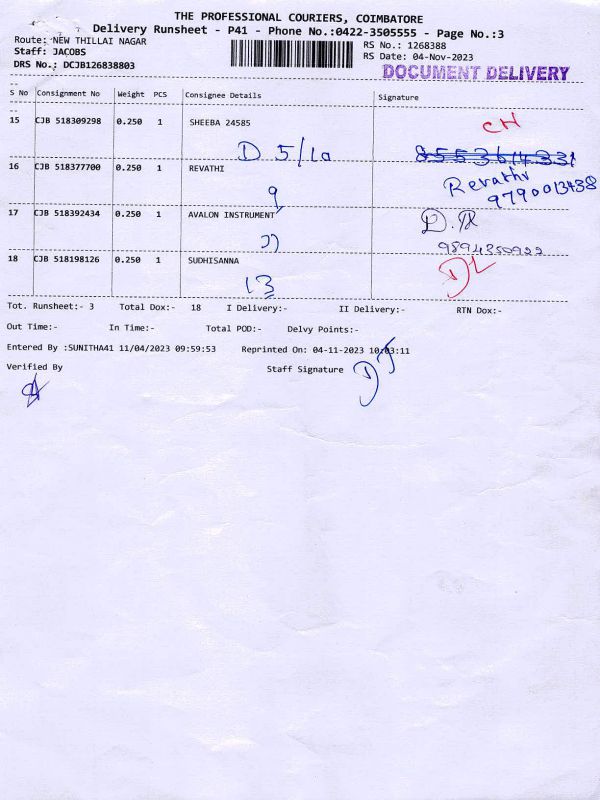 THE PROFESSIONAL COURIERS, COIMBATORE
Delivery Runsheet - P41 - Phone No.:0422-3505555 - Page No.:3
Route: NEW THILLAI NAGAR
Staff: JACOBS
DRS No.: DCJB126838803
RS No.: 1268388
RS Date: 04-Nov-2023
DOCUMENT DELIVERY
S No Consignment No Weight PCS Consignee Details Signature
15 CJB 518309298 0.250 1 SHEEBA 24585
CH
D 5/10
16 CJB 518377700 0.250 1 REVATHI
Revathi
9790013438
9
17 CJB 518392434 0.250 1 AVALON INSTRUMENT
9894350922
18 CJB 518198126 0.250 1 SUDHISANNA
DL
13
Tot. Runsheet:- 3 Total Dox:- 18 I Delivery:- II Delivery:- RTN Dox:-
Out Time:- In Time:- Total POD:- Delvy Points:-
Entered By :SUNITHA41 11/04/2023 09:59:53 Reprinted On: 04-11-2023 10:03:11
Verified By Staff Signature